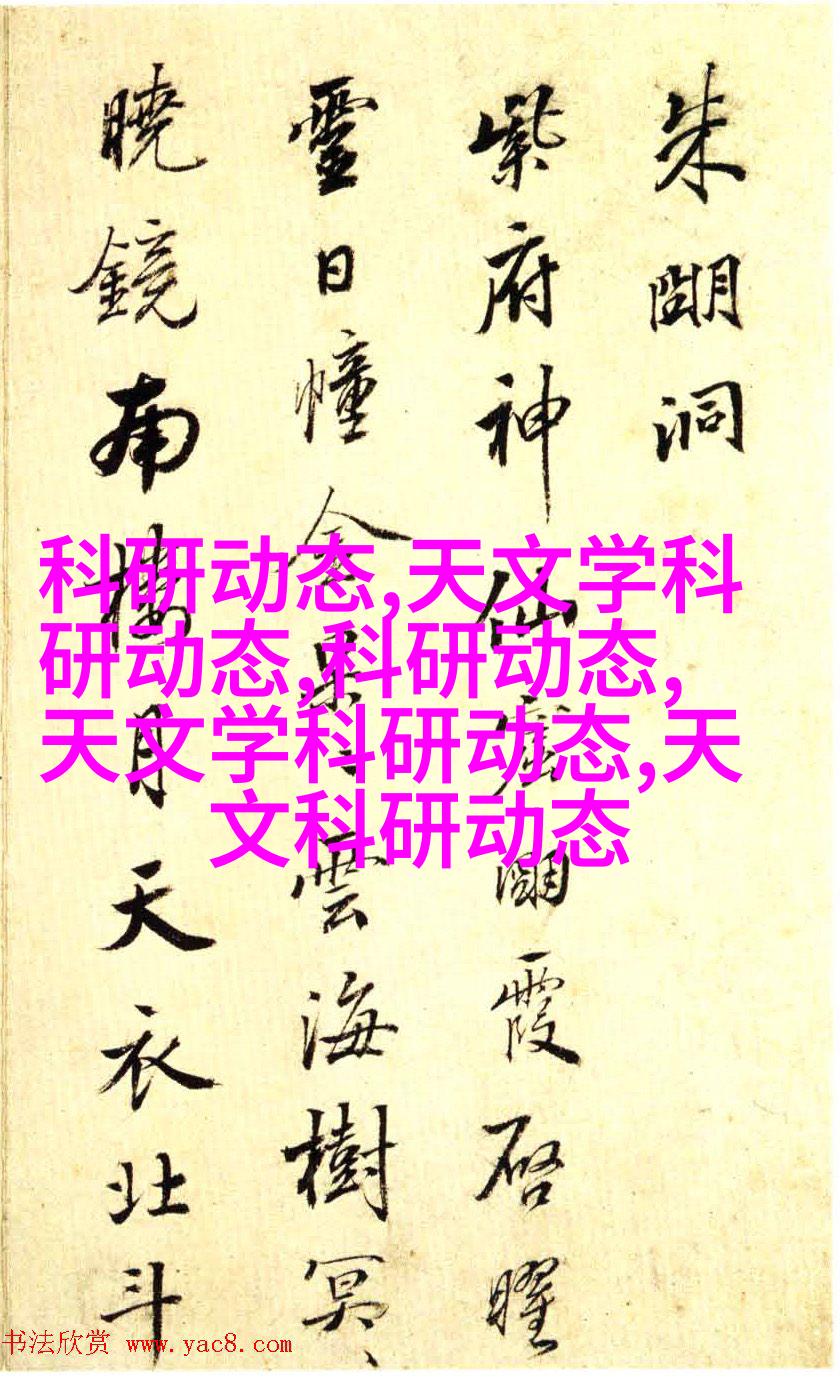 朱朙洞
紫府神仙窟朙霞启曜
靈日幢金杲〻雲海樹冥〻
曉鏡南樓月天衣北斗
科研动态,天文学科
研动态,科研动态,
天文学科研动态,天
文科研动态
书法欣赏 www.yac8.com